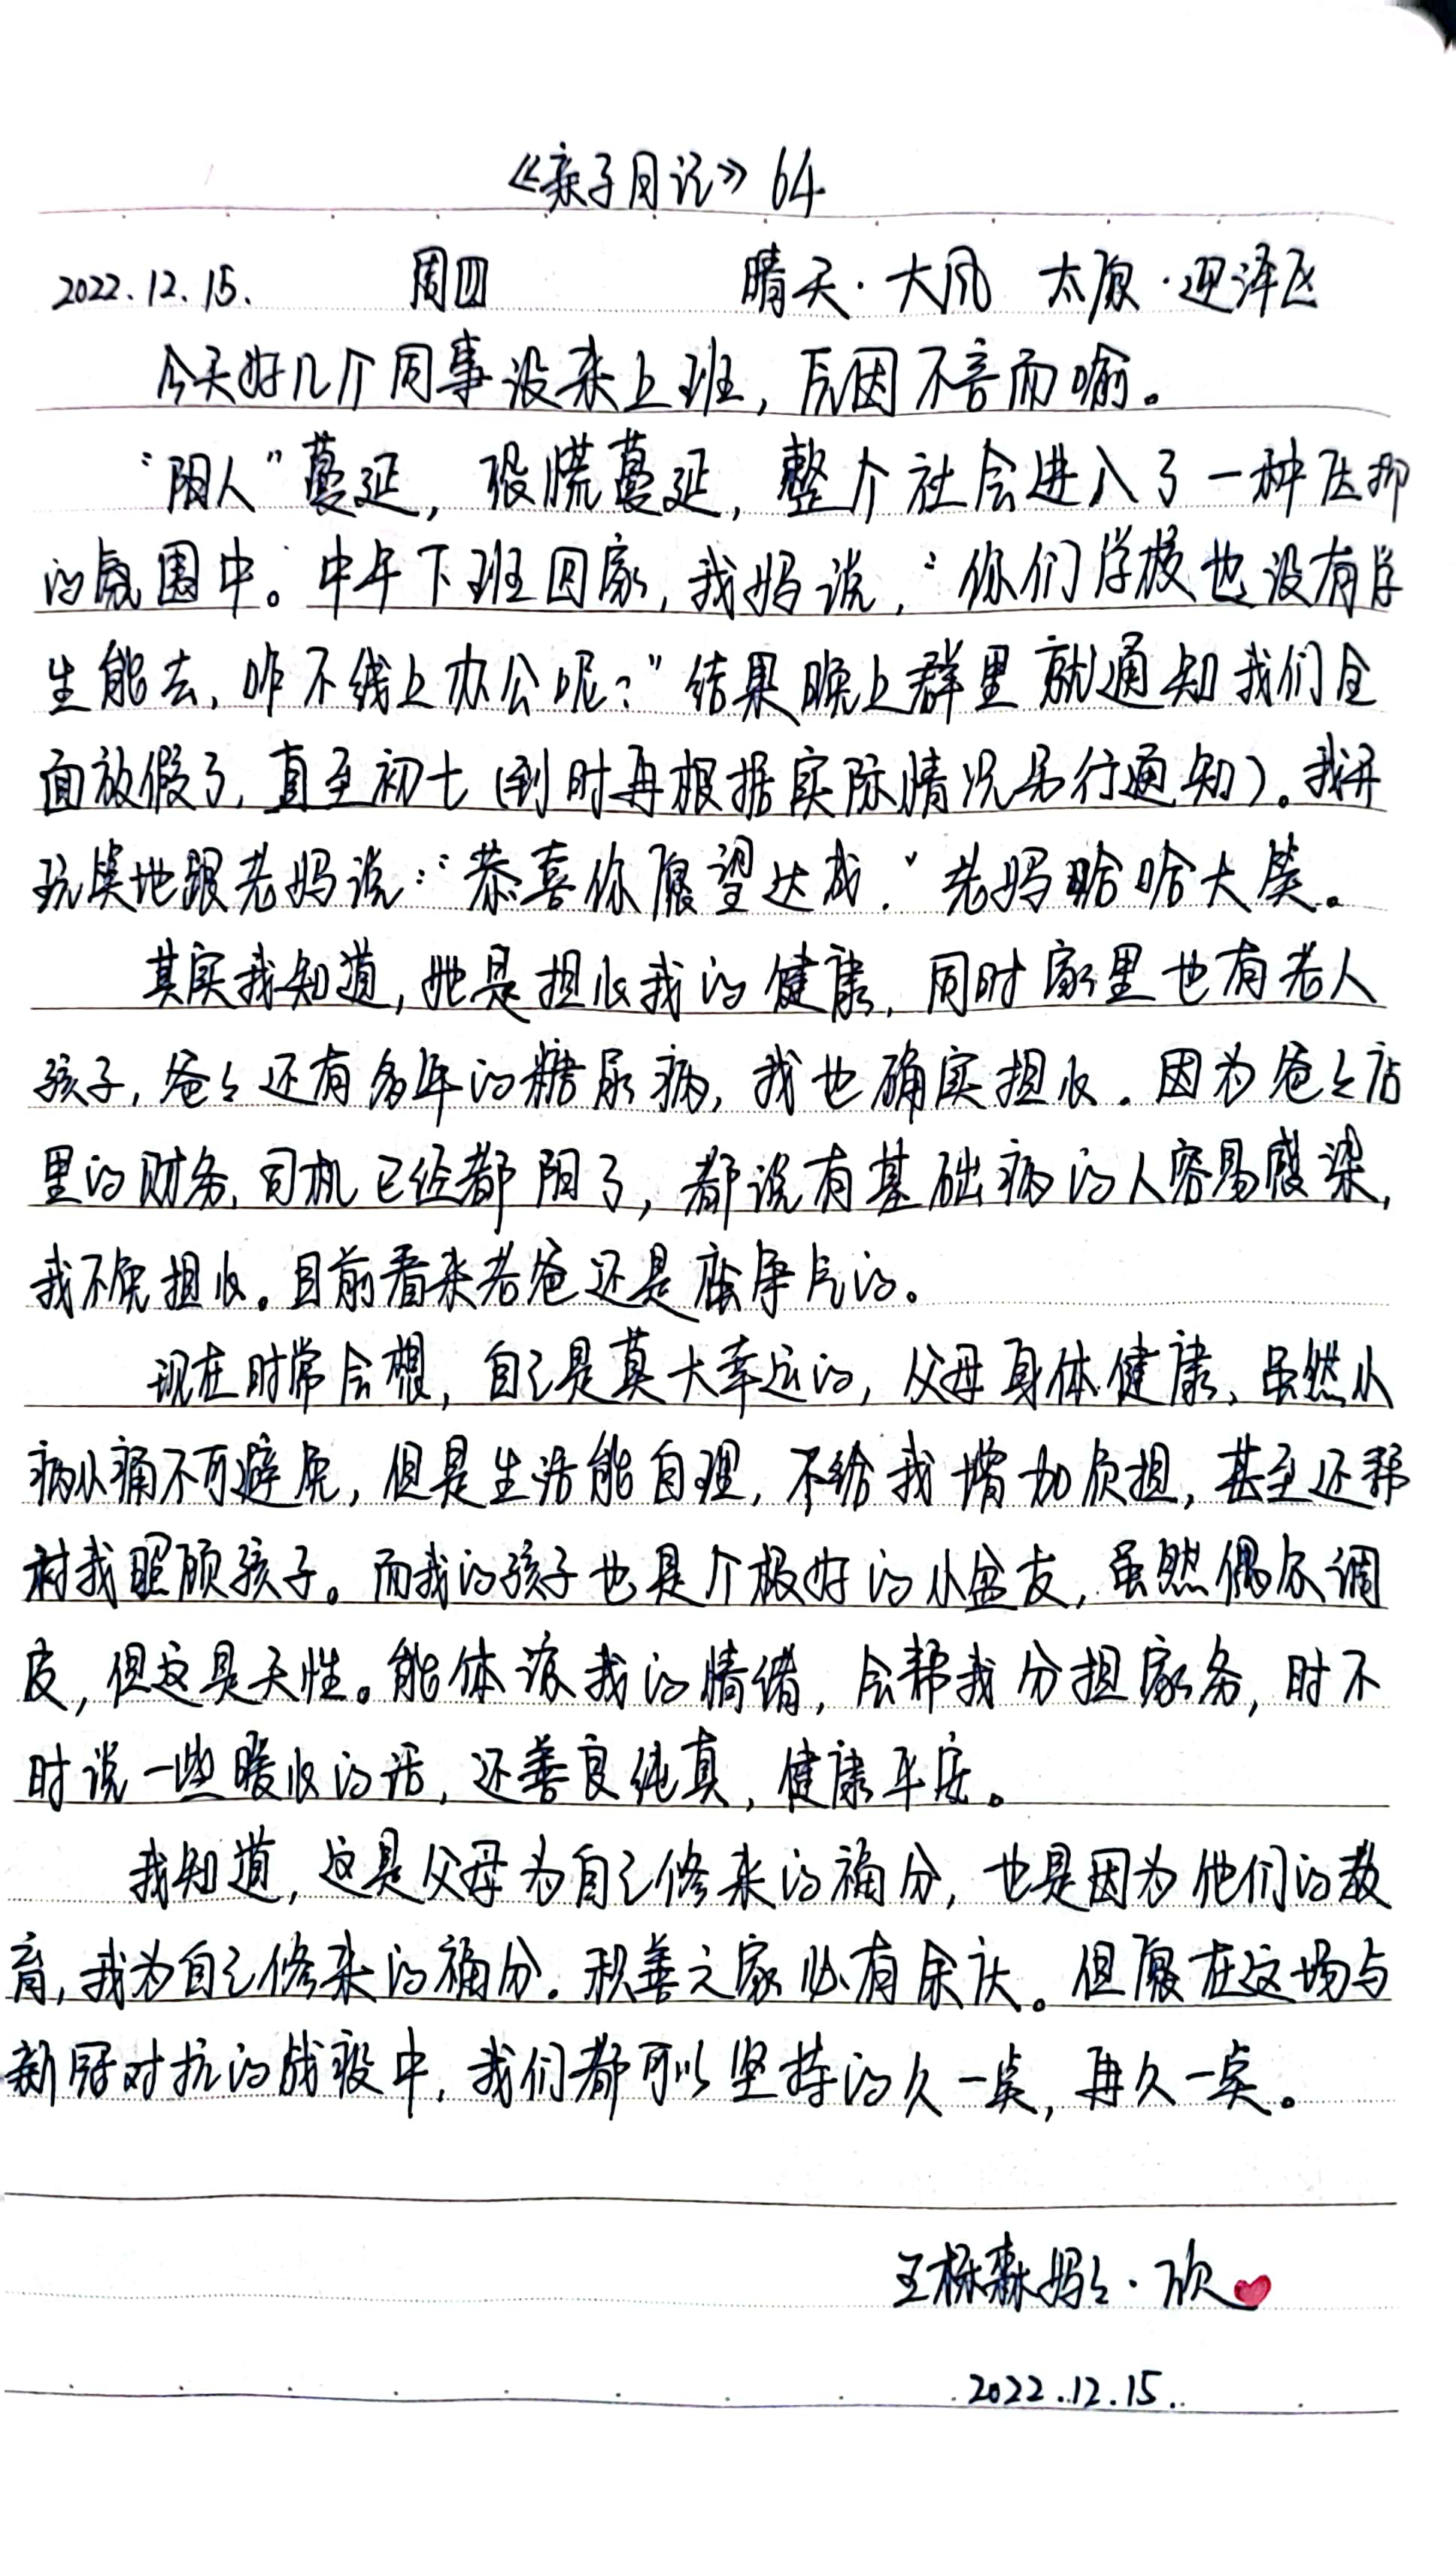 《亲子日记》64
2022.12.15. 周四 晴天·大风 太原·迎泽区
今天好几个同事没来上班，原因不言而喻。
“阳人”蔓延，恐慌蔓延，整个社会进入了一种压抑
的氛围中。中午下班回家，我妈说，“你们学校也没有学
生能去，咋不线上办公呢？”结果晚上群里就通知我们全
面放假了，直至初七（到时再根据实际情况另行通知）。我开
玩笑地跟老妈说：“恭喜你愿望达成．”老妈哈哈大笑。
其实我知道，她是担心我的健康，同时家里也有老人
孩子，爸爸还有多年的糖尿病，我也确实担心．因为爸爸店
里的财务，司机已经都阳了，都说有基础病的人容易感染，
我不免担心。目前看来老爸还是蛮争气的。
现在时常会想，自己是莫大幸运的，父母身体健康，虽然小
病小痛不可避免，但是生活能自理，不给我增加负担，甚至还帮
衬我照顾孩子。而我的孩子也是个极好的小盆友，虽然偶尔调
皮，但这是天性。能体谅我的情绪，会帮我分担家务，时不
时说一些暖心的话，还善良纯真，健康平安。
我知道，这是父母为自己修来的福分，也是因为他们的教
育，我为自己修来的福分．积善之家必有余庆。但愿在这场与
新冠对抗的战役中，我们都可以坚持的久一点，再久一点。
王栎森妈妈·欣
2022.12.15.